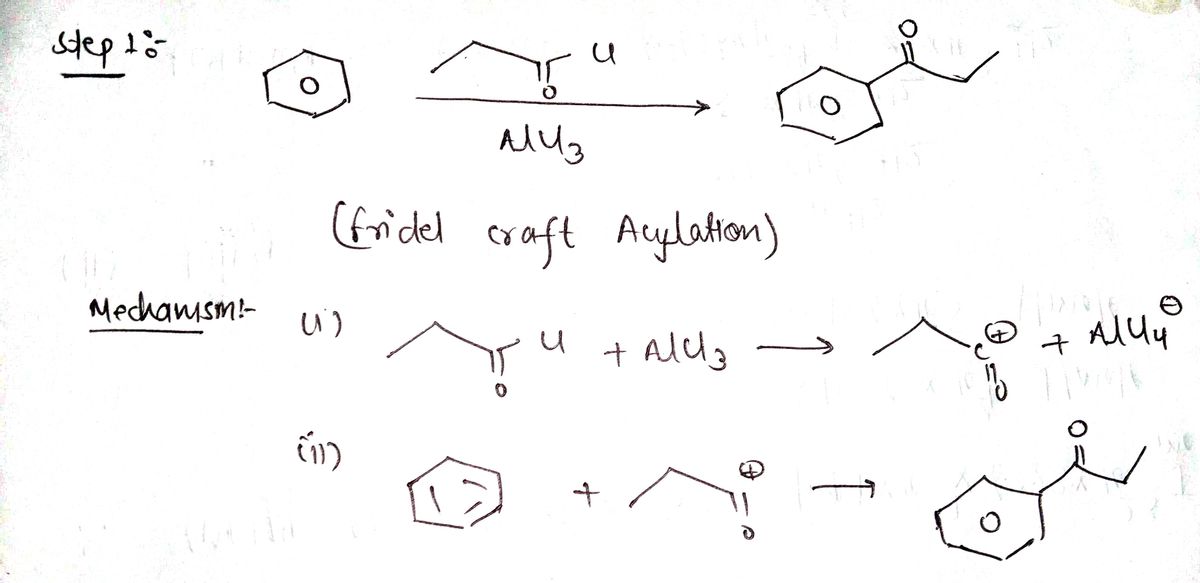 Step 1:-
Cl
O
O
AlCl3
(fridel craft Acylation)
Mechanism:-
(i) Cl + AlCl3 → C⊕ + AlCl4⊖
O O
(ii) + ⊕ → O
O